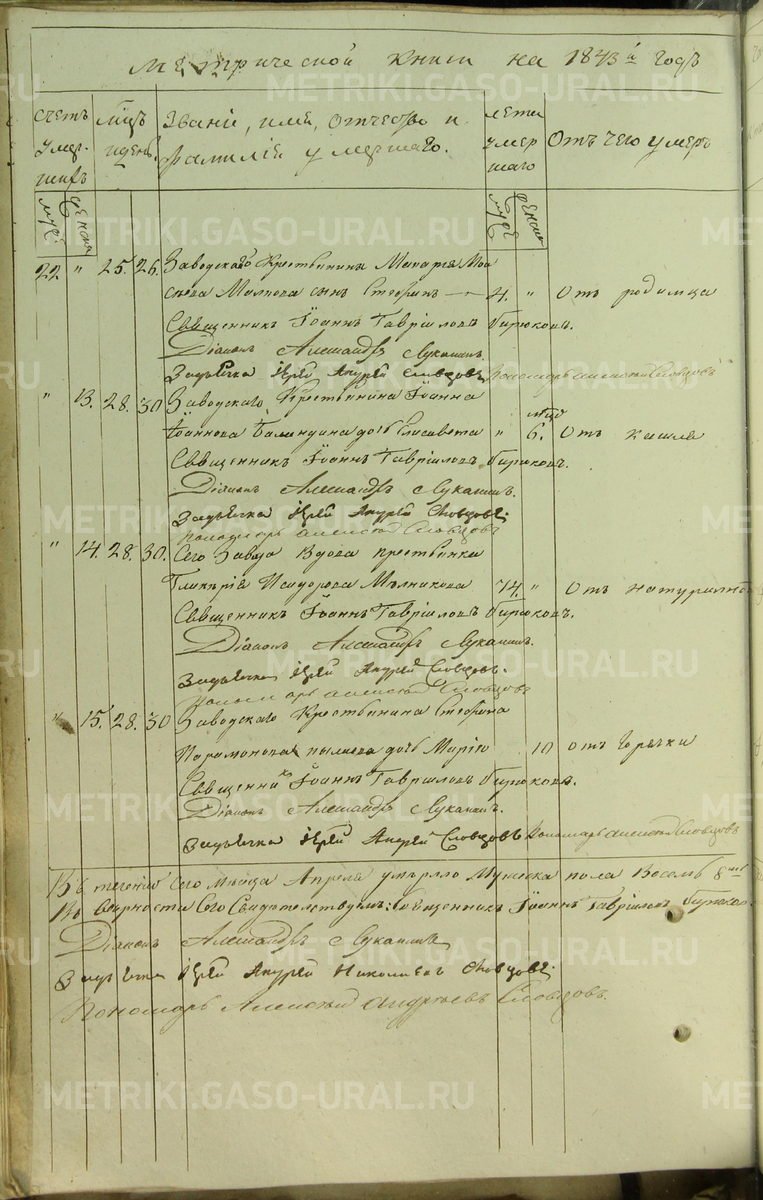 Метрической книги на 1843й годъ
Счетъ умершихъ Мцъ и день Званіе, имя, отчество и фамилія умершаго. Лета умершаго Отъ чего умеръ
муж женск муж женск
22 " 25. 26. Заводскаго Крестьянина Макарія
сынъ Стефанъ 4. " Отъ родимца
Священникъ Іоаннъ Гавріиловъ Бирюковъ.
Діаконъ Александръ Луканинъ.
Іерей Андрей Словцовъ Пономарь Алексей Словцовъ
" 13. 28. 30 Заводскаго Крестьянина Іоанна
Іоаннова Баландина дочь Елисавета " 6. мцъ Отъ кашля
Священникъ Іоаннъ Гавріиловъ Бирюковъ.
Діаконъ Александръ Луканинъ.
Іерей Андрей Словцовъ
Пономарь Алексей Словцовъ
" 14. 28. 30. Сего Завода вдова крестьянка
Гликерія Исидорова Мѣлникова 74. " Отъ натуральной
Священникъ Іоаннъ Гавріиловъ Бирюковъ.
Діаконъ Александръ Луканинъ.
Іерей Андрей Словцовъ.
Пономарь Алексей Словцовъ
" 15. 28. 30 Заводскаго Крестьянина Стефана
Парамонова дочь Марія 10 Отъ горячки
Священникъ Іоаннъ Гавріиловъ Бирюковъ.
Діаконъ Александръ Луканинъ.
Іерей Андрей Словцовъ Пономарь Алексей Словцовъ
Въ теченіи сего месяца Апреля умерло Мужеска пола Восемь 8
Въ верности сего свидетельствуемъ: Священникъ Іоаннъ Гавріиловъ Бирюковъ.
Діаконъ Александръ Луканинъ
Іерей Андрей Николаевъ Словцовъ.
Пономарь Алексей Андреевъ Словцовъ.
METRIKI.GASO-URAL.RU